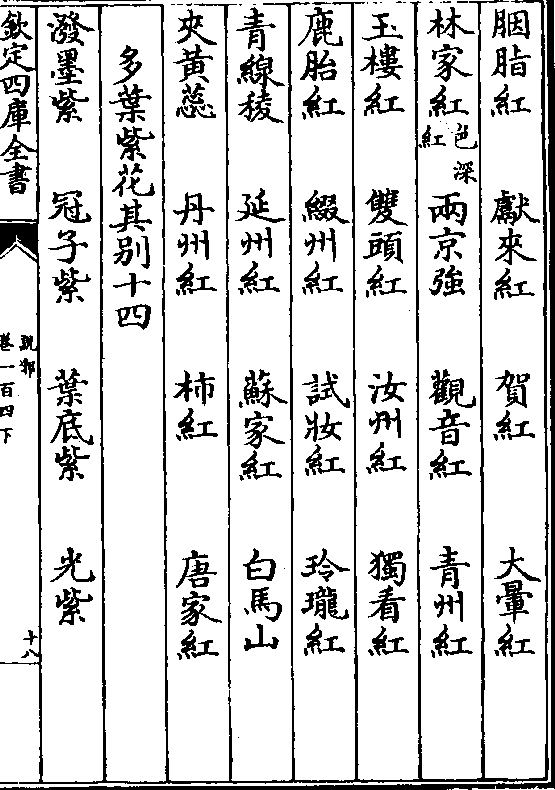 胭脂紅 獻來紅 賀紅 大暈紅
林家紅 色深紅 兩京強 觀音紅 青州紅
玉樓紅 雙頭紅 汝州紅 獨看紅
鹿胎紅 綴州紅 試妝紅 玲瓏紅
青線稜 延州紅 蘇家紅 白馬山
夾黃蕊 丹州紅 柿紅 唐家紅
多葉紫花其别十四
潑墨紫 冠子紫 葉底紫 光紫
欽定四庫全書 說郛 卷一百四下 十八